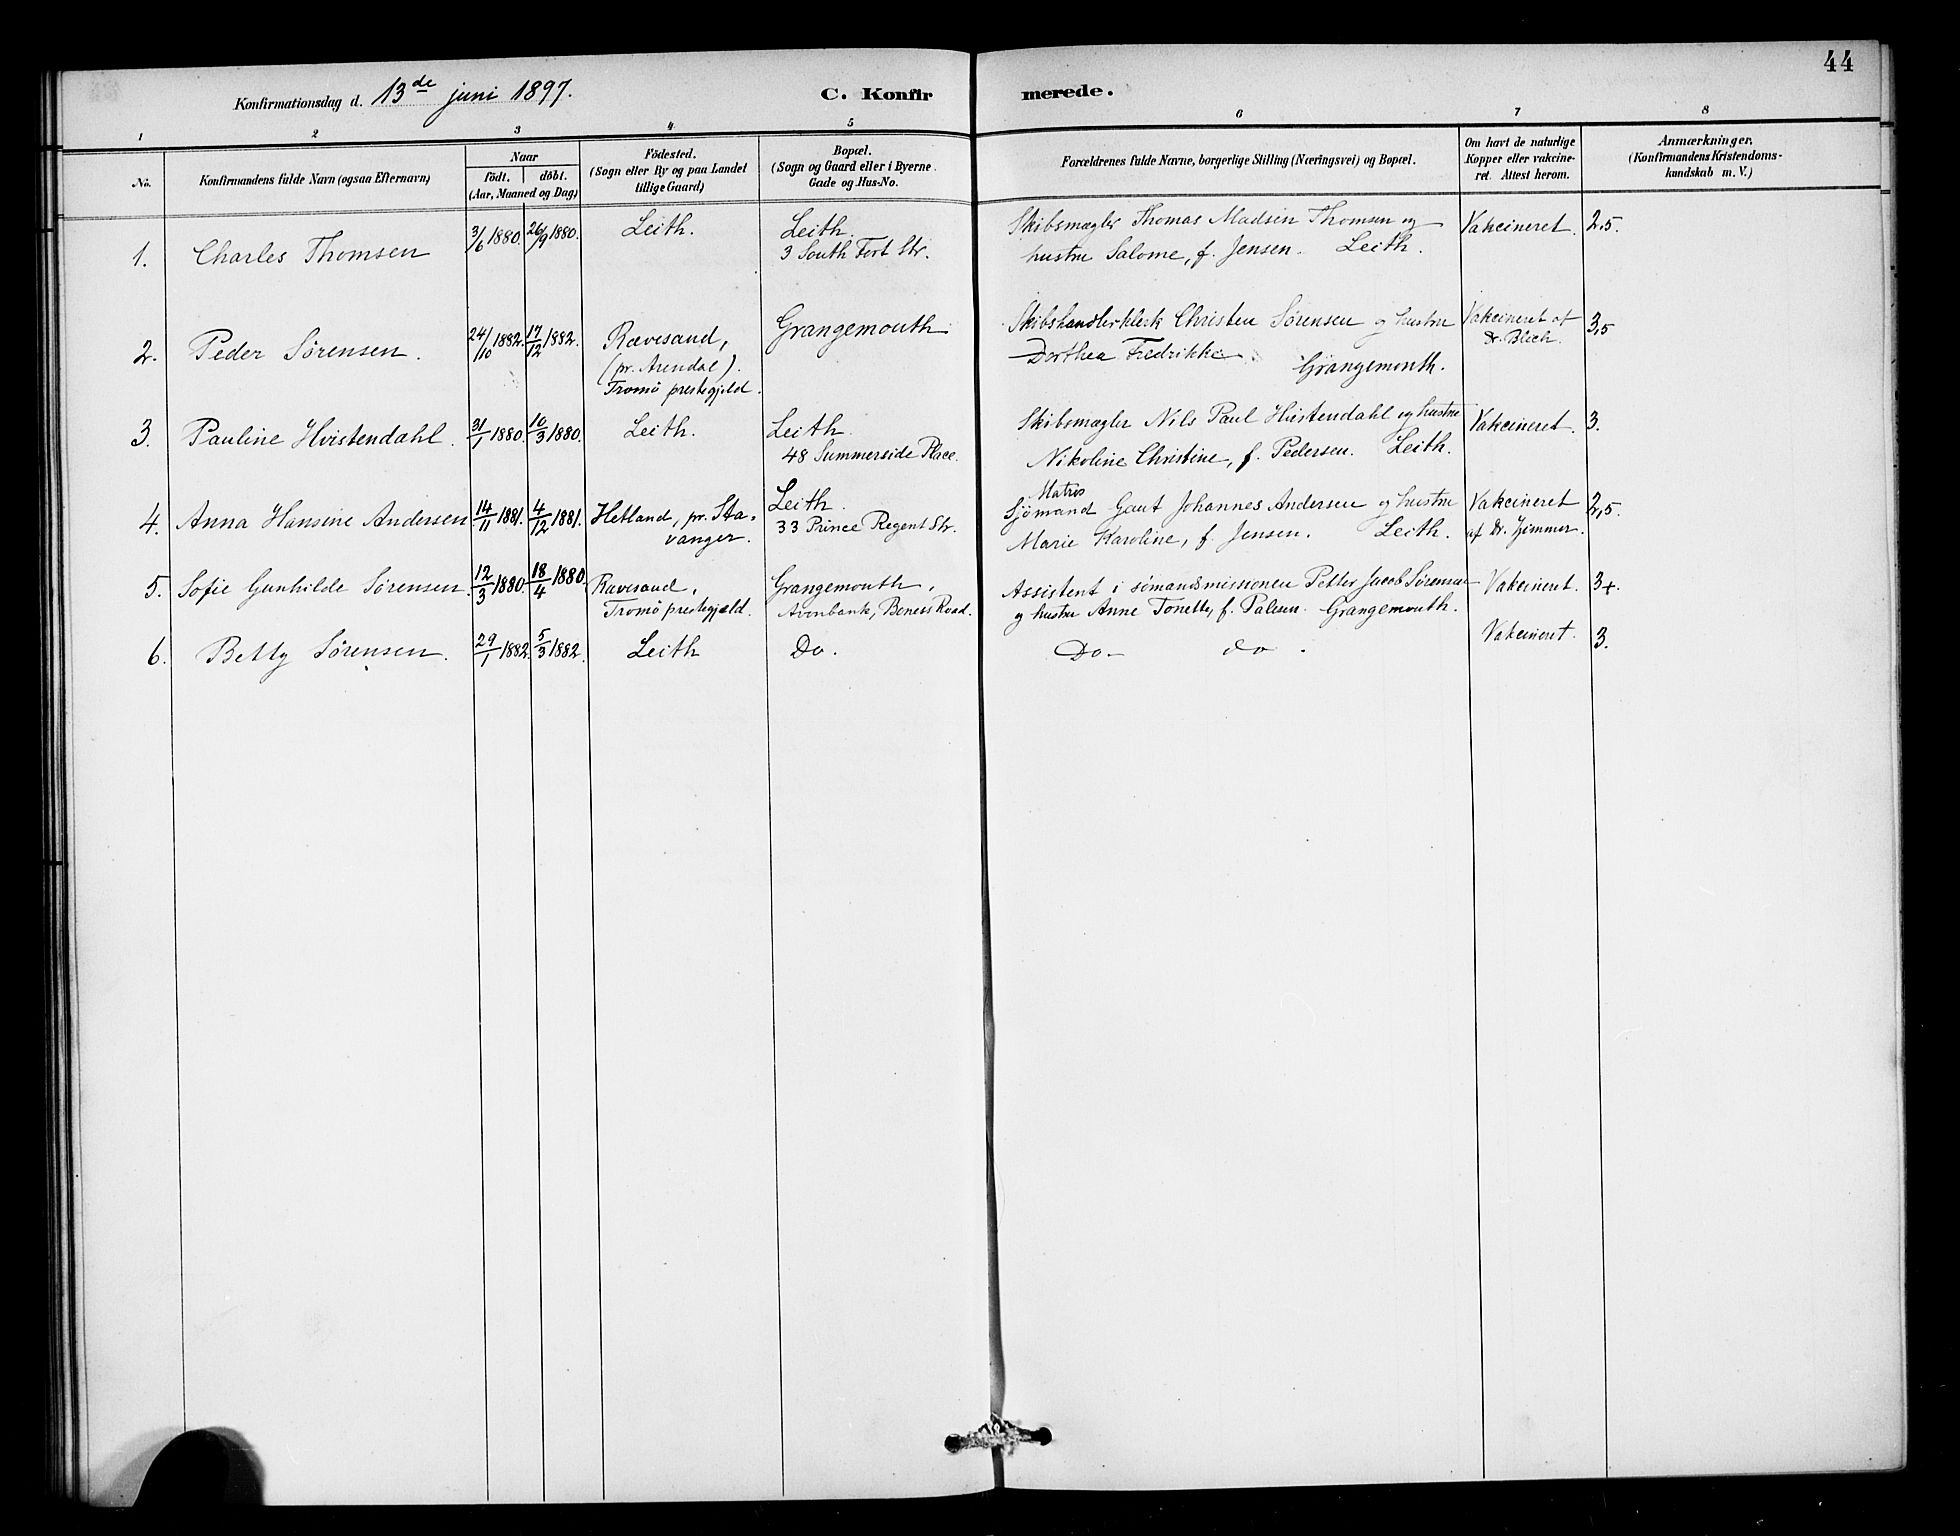 44
Konfirmationsdag d. 13de juni 1897.
C. Konfirmerede.
1 2 3 4 5 6 7 8
No.
Konfirmandens fulde Navn (ogsaa Efternavn)
Naar
födt. döbt.
(Aar, Maaned og Dag)
Födested.
(Sogn eller By og paa Landet
tillige Gaard)
Bopæl.
(Sogn og Gaard eller i Byerne
Gade og Hus-No.
Forældrenes fulde Navne, borgerlige Stilling (Næringsvei) og Bopæl.
Om havt de naturlige
Kopper eller vakcine-
ret. Attest herom.
Anmærkninger.
(Konfirmandens Kristendoms-
kundskab m. V.)
1. Charles Thomsen 3/6 1880. 26/9 1880. Leith. Leith.
3 South Fort Str.
Skibsmægler Thomas Madsen Thomsen og
hustru Salome, f. Jensen. Leith.
Vakcineret. 2,5.
2. Peder Sørensen. 24/10 1882. 17/12 1882. Rævesand,
(pr. Arendal).
Tromö prestegjeld.
Grangemouth
Skibshandlerklerk Christen Sørensen og hustru
Dorthea Fredrikke Grangemouth.
Vakcineret af
Dr. Blich.
3,5
3. Pauline Hvistendahl. 31/1 1880. 10/3 1880. Leith. Leith.
48 Summerside Place.
Skibsmægler Nils Paul Hvistendahl og hustru
Nikoline Christine, f. Pedersen. Leith.
Vakcineret. 3.
4. Anna Hansine Andersen 14/11 1881. 4/12 1881. Hetland, pr. Sta-
vanger.
Leith.
33 Prince Regent Str.
Matros
Sjömand Gaut Johannes Andersen og hustru
Marie Karoline, f. Jensen. Leith.
Vakcineret
af Dr.
2,5.
5. Sofie Gunhilde Sørensen. 12/3 1880. 18/4 1880. Ravesand,
Tromö prestegjæld.
Grangemouth,
Avonbank, Road.
Assistent i sömandsmissionen Petter Jacob Sørensen
og hustru Anne Tonette, f. Grangemouth.
Vakcineret. 3+.
6. Betty Sørensen. 29/1 1882. 5/3 1882. Leith Do.
Do- do.
Vakcineret. 3.